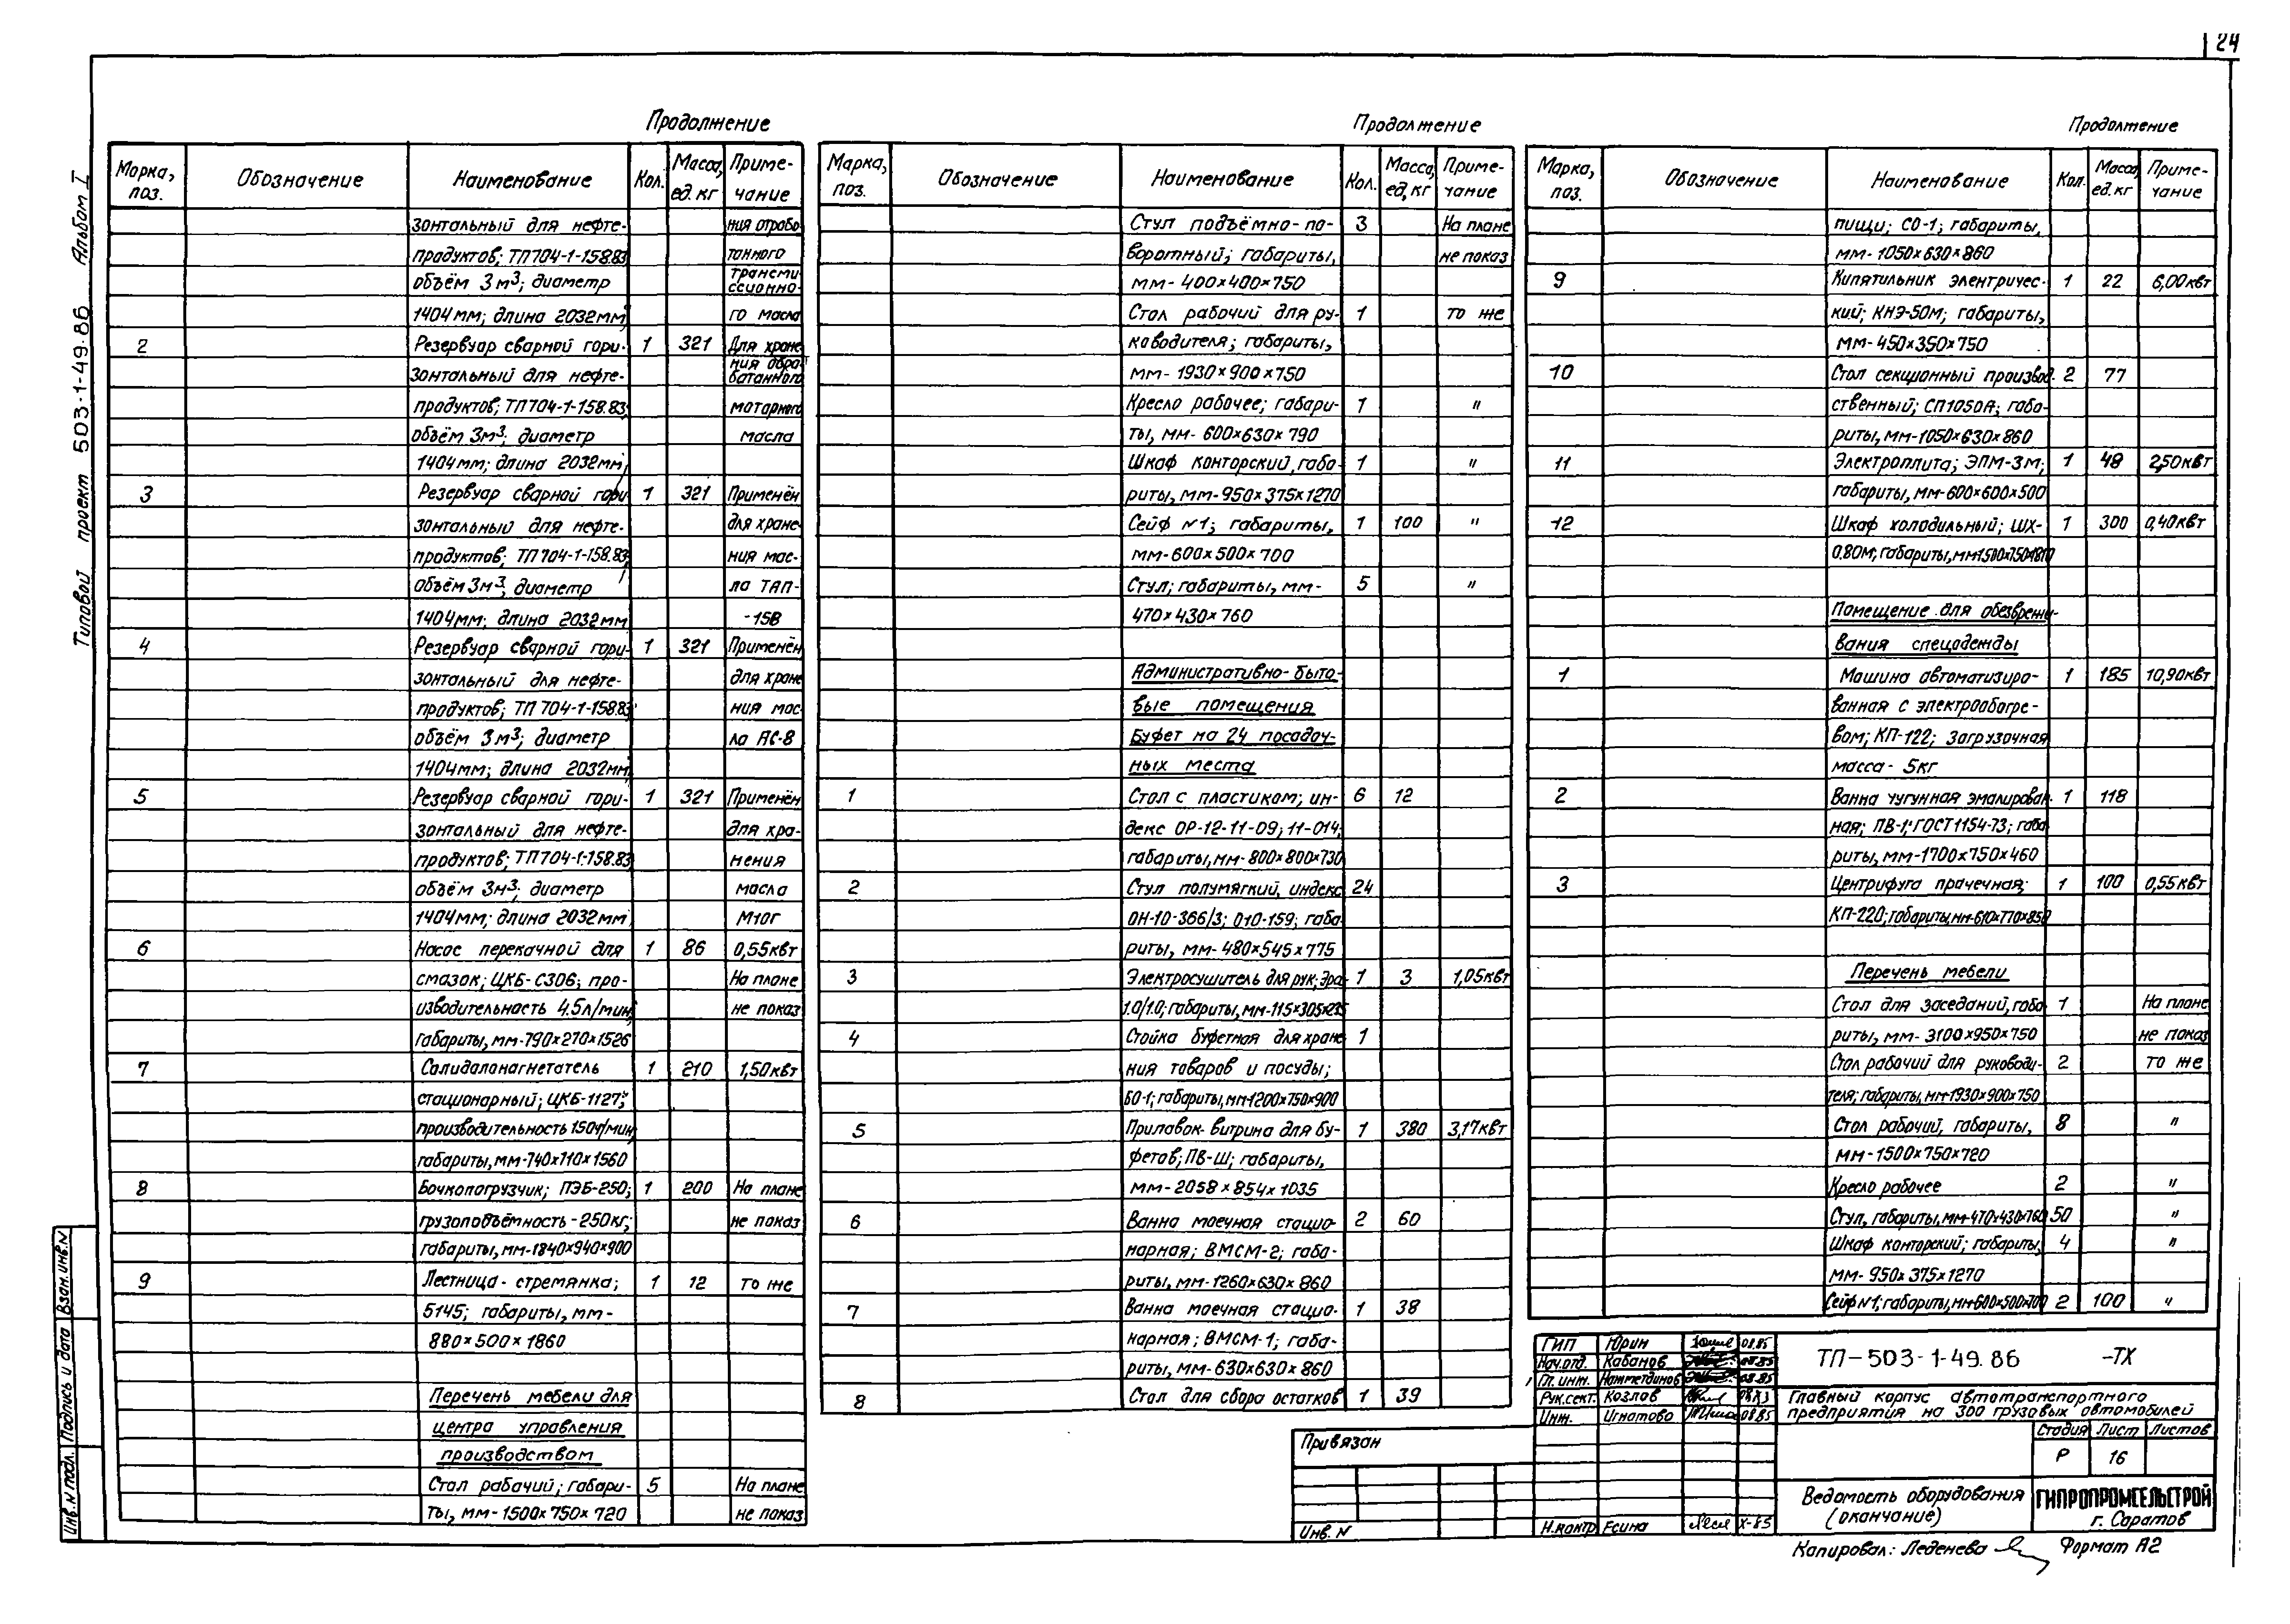 24
Типовой проект 503-1-49.86 Альбом I
Продолжение
Марка, поз. Обозначение Наименование Кол. Масса, ед. кг Приме-чание
зонтальный для нефте- ния отрабо-
продуктов; ТП704-1-158.83 танного
объём 3м³; диаметр трансми-ссионно-
1404мм; длина 2032мм го масла
2 Резервуар сварной гори- 1 321 Для хране-
зонтальный для нефте- ния обра-батанного
продуктов; ТП704-1-158.83; моторного
объём 3м³; диаметр масла
1404мм; длина 2032мм;
3 Резервуар сварной гори 1 321 Применён
зонтальный для нефте- для хране-
продуктов; ТП704-1-158.83; ния мас-
объём 3м³; диаметр ла ТАП-
1404мм; длина 2032мм -15В
4 Резервуар сварной гори- 1 321 Применён
зонтальный для нефте- для хране
продуктов; ТП704-1-158.83 ния мас-
объём 3м³; диаметр ла АС-8
1404мм; длина 2032мм
5 Резервуар сварной гори- 1 321 Применён
зонтальный для нефте- для хра-
продуктов; ТП704-1-158.83 нения
объём 3м³; диаметр масла
1404мм; длина 2032мм М10Г
6 Насос перекачной для 1 86 0,55квт
смазок; ЦКБ-С306; про- На плане
изводительность 4.5л/мин; не показ
габариты, мм-790×270×1526
7 Солидолонагнетатель 1 210 1,50квт
стационарный; ЦКБ-1127;
производительность 150г/мин;
габариты, мм-740×710×1560
8 Бочкопогрузчик; ПЭБ-250; 1 200 На плане
грузоподъёмность-250кг; не показ
габариты, мм-1840×940×900
9 Лестница-стремянка; 1 12 то же
5145; габариты, мм-
880×500×1860
Перечень мебели для
центра управления
производством
Стол рабочий; габари- 5 На плане
ты, мм-1500×750×720 не показ
Продолжение
Марка, поз. Обозначение Наименование Кол. Масса, ед, кг Приме-чание
Стул подъёмно-по- 3 На плане
воротный; габариты, не показ
мм-400×400×750
Стол рабочий для ру- 1 то же
ководителя; габариты,
мм-1930×900×750
Кресло рабочее; габари- 1 "
ты, мм-600×630×790
Шкаф конторский, габа- 1 "
риты, мм-950×375×1270
Сейф №1; габариты, 1 100 "
мм-600×500×700
Стул; габариты, мм- 5 "
470×430×760
Административно-быто-
вые помещения
Буфет на 24 посадоч-
ных места
1 Стол с пластиком; ин- 6 12
декс ОР-12-11-09; 11-014;
габариты, мм-800×800×730
2 Стул полумягкий, индекс 24
ОН-10-366/3; 010-159; габа
риты, мм-480×545×775
3 Электросушитель для рук; Эра- 1 3 1,05квт
1.0/1.0; габариты, мм-115×305×235
4 Стойка буфетная для хране 1
ния товаров и посуды;
БО-1; габариты, мм-1200×750×900
5 Прилавок-витрина для бу- 1 380 3,17квт
фетов; ПВ-Ш; габариты,
мм-2058×854×1035
6 Ванна моечная стацио- 2 60
нарная; ВМСМ-2; габа-
риты, мм-1260×630×860
7 Ванна моечная стацио- 1 38
нарная; ВМСМ-1; габа-
риты, мм-630×630×860
8 Стол для сбора остатков 1 39
Продолжение
Марка, поз. Обозначение Наименование Кол. Масса, ед. кг Приме-чание
пищи; СО-1; габариты,
мм-1050×630×860
9 Кипятильник электричес- 1 22 6,00квт
кий; КНЭ-50М; габариты,
мм-450×350×750
10 Стол секционный производ- 2 77
ственный; СП1050А; габа-
риты, мм-1050×630×860
11 Электроплита; ЭПМ-3м; 1 48 2,50квт
габариты, мм-600×600×500
12 Шкаф холодильный; ШХ- 1 300 0,40квт
0.80М; габариты, мм-1500×750×1810
Помещение для обезврежи-
вания спецодежды
1 Машина автоматизиро- 1 185 10,90квт
ванная с электрообогре-
вом; КП-122; загрузочная
масса-5кг
2 Ванна чугунная эмалирован- 1 118
ная; ПВ-1; ГОСТ 1154-73; габа
риты, мм-1700×750×460
3 Центрифуга прачечная; 1 100 0,55квт
КП-220; габариты, мм-610×770×850
Перечень мебели
Стол для заседаний, габа 1 На плане
риты, мм-3100×950×750 не показ
Стол рабочий для руководи- 2 то же
теля; габариты, мм-1930×900×750
Стол рабочий, габариты, 8 "
мм-1500×750×720
Кресло рабочее 2 "
Стул, габариты, мм-470×430×760 50 "
Шкаф конторский; габариты, 4 "
мм-950×375×1270
Сейф №1; габариты, мм-600×500×700 2 100 "
ГИП Юрин 08.85
Нач.отд. Кабанов 08.85
Гл. инж. 08.85
Рук.сект. Козлов
Инж. Игнатово 08.85
Н.контр Есина X-85
ТП-503-1-49.86 -ТХ
Главный корпус автотранспортного
предприятия на 300 грузовых автомобилей
Стадия Лист Листов
Р 16
Ведомость оборудования
(окончание)
ГИПРОПРОМСЕЛЬСТРОЙ
г. Саратов
Привязан
Инв. N
Копировал: Леденева Формат А2
Инв. N подл. Подпись и дата Взам. инв. N